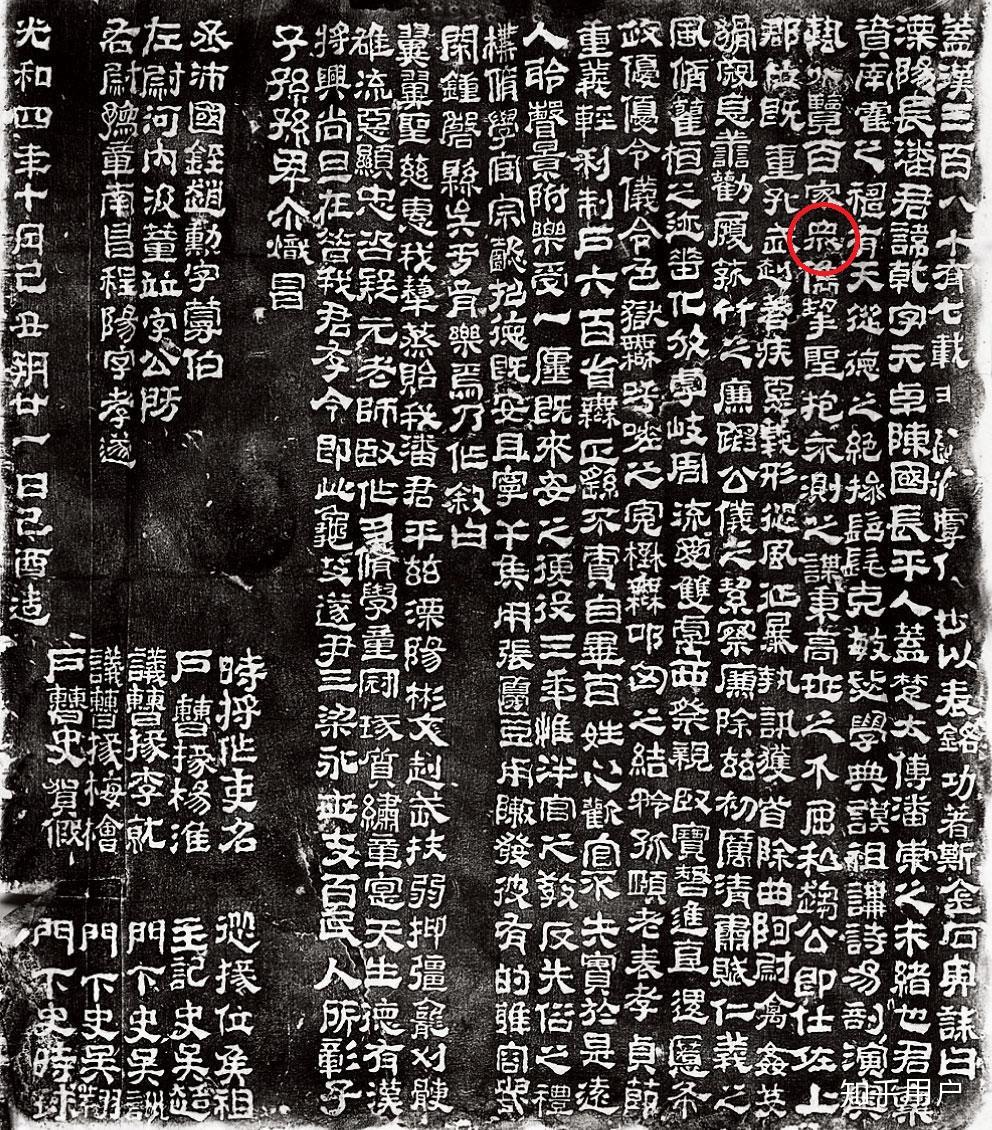 蓋漢三百八十有七載于以表銘功著斯金石畀誄曰
溧陽長潘君諱乾字元卓陳國長平人蓋楚太傅潘崇之末緒也君稟
資南霍之神有天從德之絕操髫髦克敏學典謨祖講詩易剖演奧
藝外覽百家眾儁挈聖抱不測之謀秉高世之介屈私趨公即仕佐上
郡位既重孔武赳著疾惡義形從風征暴執訊獲首除曲阿尉禽姦戔
猾寇息善歡履菰竹之廉蹈公儀之絜察廉除茲初厲清肅賦仁義之
風脩之迹蕃化放虖岐周流愛雙虖祭親臤寶智進直退慝布
政優優令儀令色獄無呼嗟之冤野無叩匈之結矜孤頤老表孝貞節
重義輕利制戶六百省無正繇不責自畢百姓心歡官不失實於是遠
人聆聲景附樂受一廛既來安之復役三年惟泮宮之教反失俗之禮
構脩學官宗懿招德既安且寧干侯用張籩豆用陳發彼有的雅容畢
閑鍾磬縣矣于胥樂焉乃作敘曰
翼翼聖慈惠我黎蒸貽我潘君平茲溧陽彬文赳武扶弱抑彊刈骾
雄流惡顯忠咨疑元老師臤作朋脩學童冠琢質繡章實天生德有漢
將興尚旦在昔我君存今即此龜艾遂尹三梁永世支百民人所彰子
子孫孫卑尒熾昌
丞沛國銍趙勳字蔓伯
左尉河內汲董並字公房
右尉豫章南昌程陽字孝遂
時將作吏名
戶曹掾楊淮
議曹掾李就
議曹掾梅檜
戶曹史賀假
從掾位侯祖
主記史吳超
門下史吳訓
門下史吳翔
門下史時球
光和四年十月己丑朔廿一日己酉造
知乎用户